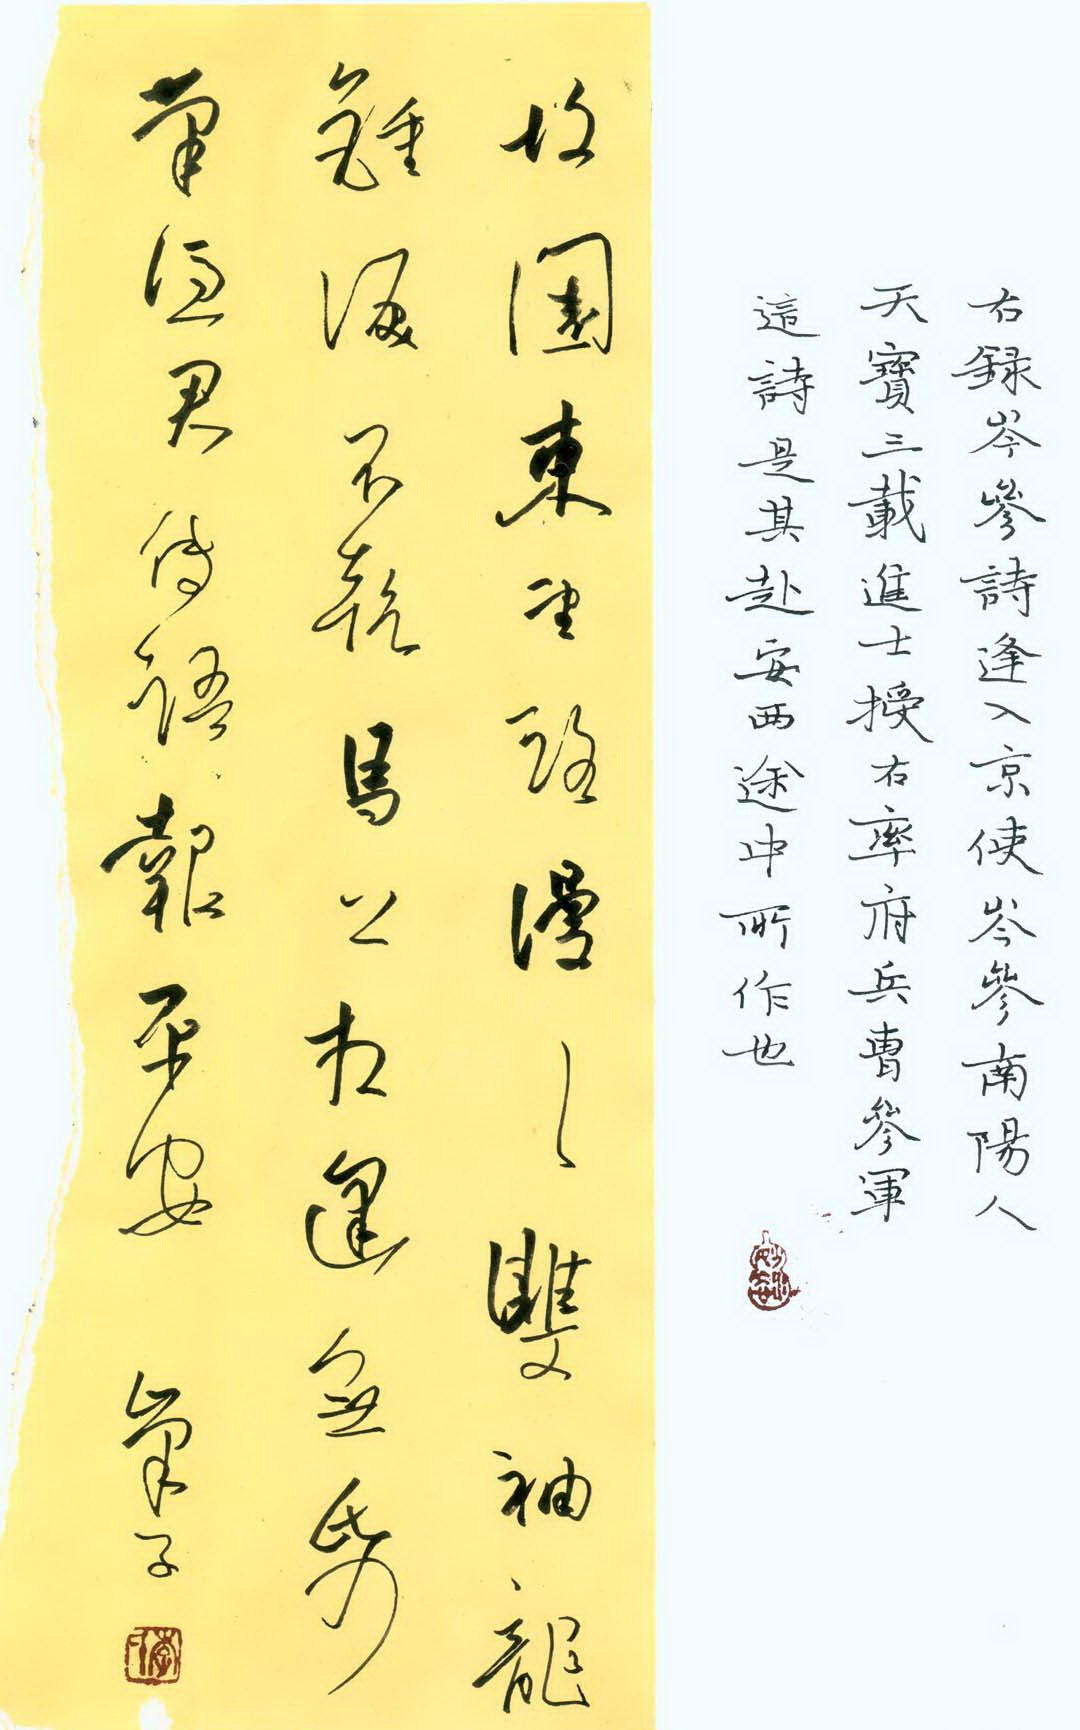 右録岑參詩逢入京使岑參南陽人
天寶三載進士授右率府兵曹參軍
這詩是其赴安西途中所作也
故園東望路漫〻雙袖龍
鍾淚不乾馬上相逢無帋
筆憑君傳語報平安